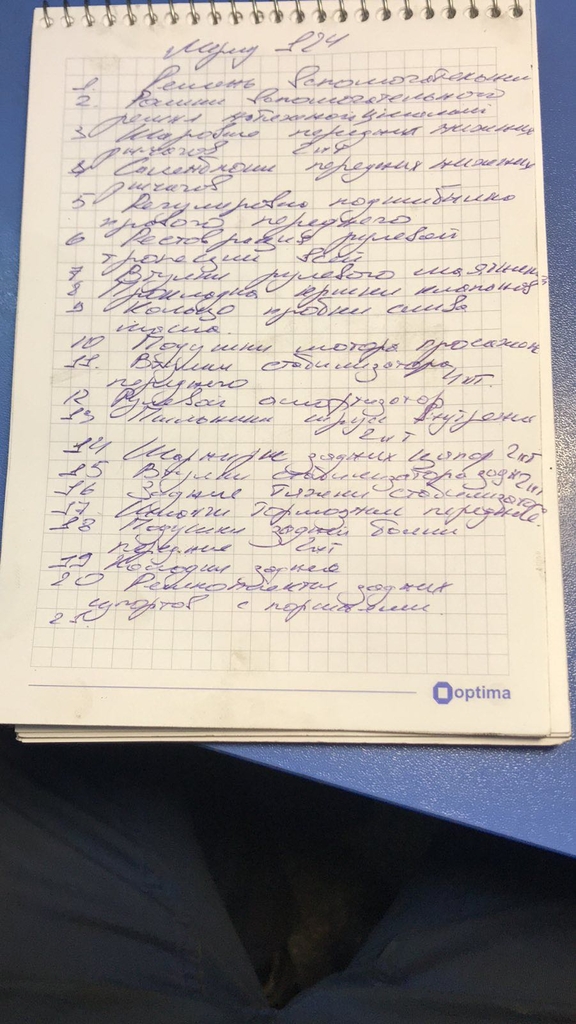 Мерц 124
1. Ремень вспомогательный
2. Ролики вспомогательного
ремня натяжной
3 Шаровые передних нижних
рычагов 2шт
4 Сайлентблоки передних нижних
рычагов
5 Регулировка подшипника
правого переднего
6 Реставрация рулевой
трапеции
7 Втулки рулевого маятника
8 Прокладка крышки клапанов
9 Кольцо пробки слива
масла.
10 Подушки мотора просажен
11. Втулки стабилизатора
переднего 4шт.
12 Рулевой амортизатор
13 Пыльники шруса внутрены
2шт
14 Шарниры задних цапф 2шт
15 Втулки стабилизатора задн 2шт
16 Задние тяжки стабилизатора
17 Шланги тормозные передние.
18 Подушки задней балки
передние 2шт
19 Колодки задние
20 Ремкомплекты задних
супортов с поршнями
21.
optima